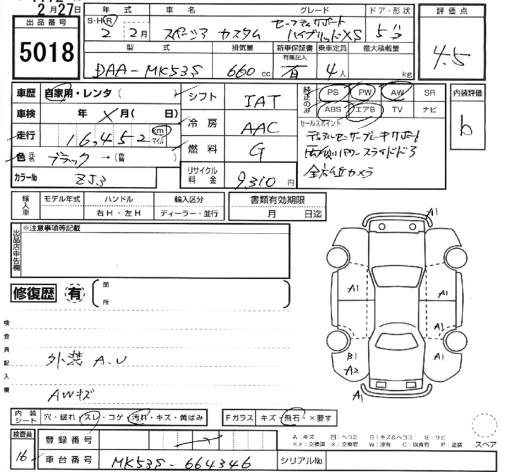 2月27日
出品番号
5018
年式
車名
グレード
ドア・形状
評価点
S・H・R
2 2月
スペーシア カスタム
セーフティサポート
ハイブリッドXS
5ﾄﾞｱ
4.5
型式
排気量
新車保証書
乗車定員
最大積載量
有 記入
DAA-MK53S
660cc
有
4人
kg
車歴
自家用・レンタ
シフト
IAT
純正のみ
PS PW AW SR
ABS エアB TV ナビ
内装評価
b
車検
年 × 月( 日)
冷房
AAC
セールスポイント
デュアルセンサーブレーキサポート
両側パワースライドドア
全方位カメラ
走行
16,452
km
マイル
燃料
G
色
元色
ブラック→(
カラーNo
ZJ3
リサイクル料金
9,310円
輸入車
モデル年式
ハンドル
輸入区分
右H・左H
ディーラー・並行
書類有効期限
月 日迄
出品店申告欄
※注意事項等記載
修復歴
有
箇所
検査員記入欄
外装 A.U
AWキズ
A1
A1 A1
B1
A2
A1
A1
内装シート
穴・破れ・スレ・コゲ・汚れ・キズ・黄ばみ
Fガラス
キズ・飛石・×要す
検査員
16
登録番号
車台番号
MK53S-664346
シリアルNo.
スペア
A:キズ